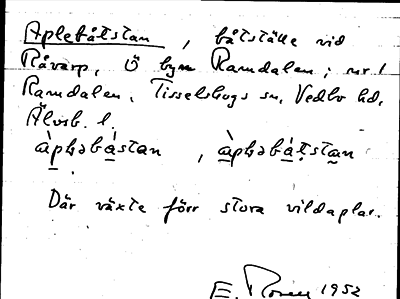 Aplebåtstan, båtställe vid
Råvarp, Ö byn Ramdalen; nr 1
Ramdalen, Tisselskogs sn, Vedbo hd,
Älvsb. l.
àphəbástan, àphəbátstan
Där växte förr stora vildaplar.
E. 1952